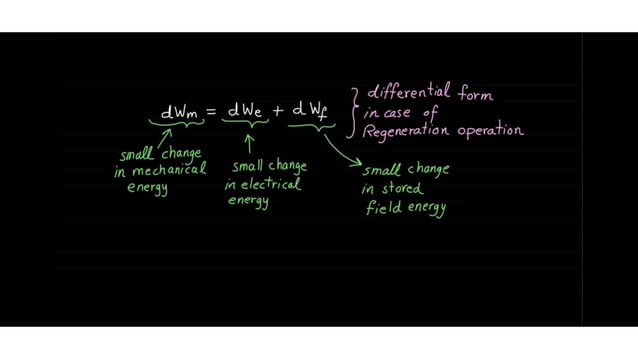 dWm = dWe + dWf
differential form
in case of
Regeneration operation
small change
in mechanical
energy
small change
in electrical
energy
small change
in stored
field energy